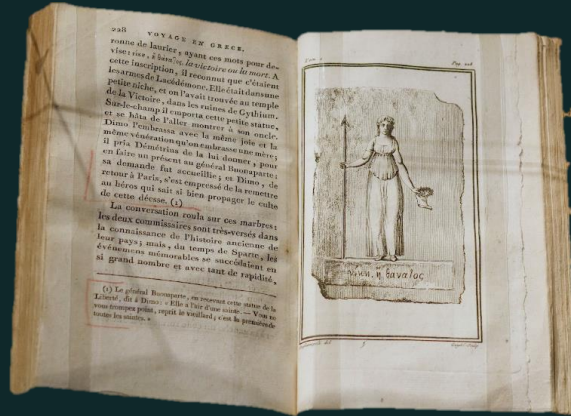 228 VOYAGE EN GRECE.
ronne de laurier, ayant ces mots pour de-
vise: la victoire ou la mort. A
cette inscription, il reconnut que c'étaient
les armes de Lacédémone. Elle était dans une
petite niche, et on l'avait trouvée au temple
de la Victoire, dans les ruines de Gythium.
Sur-le-champ il emporta cette petite statue,
et se hâta de l'aller montrer à son oncle.
Dimo l'embrassa avec la même joie et la
même vénération qu'on embrasse une mère;
il pria Démétrina de la lui donner, pour
en faire un présent au général Buonaparte:
sa demande fut accueillie; et Dimo, de
retour à Paris, s'est empressé de la remettre
au héros qui sait si bien propager le culte
de cette déesse. (1)
La conversation roula sur ces marbres:
les deux commissaires sont très-versés dans
la connaissance de l'histoire ancienne de
leur pays; mais, du temps de Sparte, les
événemens mémorables se succédaient en
si grand nombre et avec tant de rapidité,
(1) Le général Buonaparte, en recevant cette statue de la
Liberté, dit à Dimo: « Elle a l'air d'une sainte. — Vous ne
vous trompez point, reprit le vieillard; c'est la première de
toutes les saintes. »
Pag. 228
η θανατος